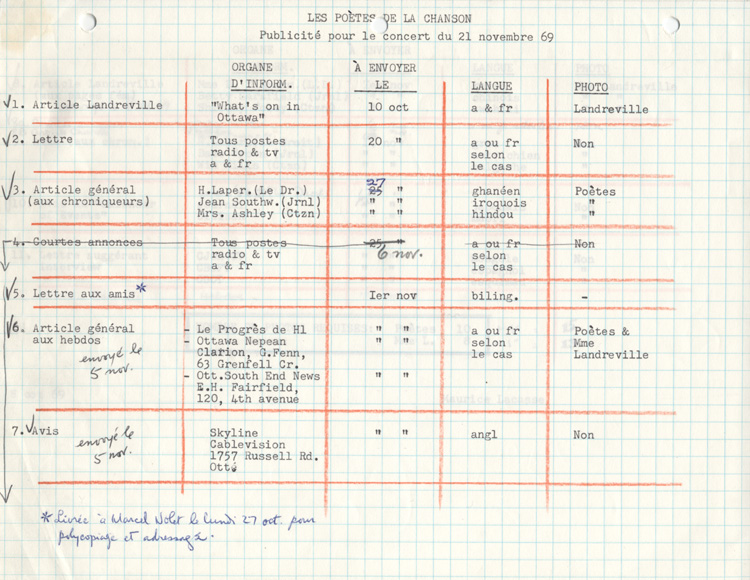 LES POÈTES DE LA CHANSON
Publicité pour le concert du 21 novembre 69
ORGANE D'INFORM.
À ENVOYER LE
LANGUE
PHOTO
1. Article Landreville "What's on in 10 oct a & fr Landreville
Ottawa"
2. Lettre Tous postes 20 " a ou fr Non
radio & tv selon
a & fr le cas
27
3. Article général H.Laper.(Le Dr.) 25 " ghanéen Poètes
(aux chroniqueurs) Jean Southw.(Jrnl) " " iroquois "
Mrs. Ashley (Ctzn) " " hindou "
4. Courtes annonces Tous postes 25 " a ou fr Non
radio & tv 6 nov. selon
a & fr le cas
5. Lettre aux amis* Ier nov biling. -
6. Article général - Le Progrès de Hl " " a ou fr Poètes &
aux hebdos - Ottawa Nepean " " selon Mme
envoyé le Clarion, G.Fenn, le cas Landreville
5 nov. 63 Grenfell Cr.
- Ott.South End News " "
E.H. Fairfield,
120, 4th avenue
7. Avis Skyline " " angl Non
envoyé le Cablevision
5 nov. 1757 Russell Rd.
Ott.
* Livrée à Marcel Nolet le lundi 27 oct. pour
polycopiage et adressage.